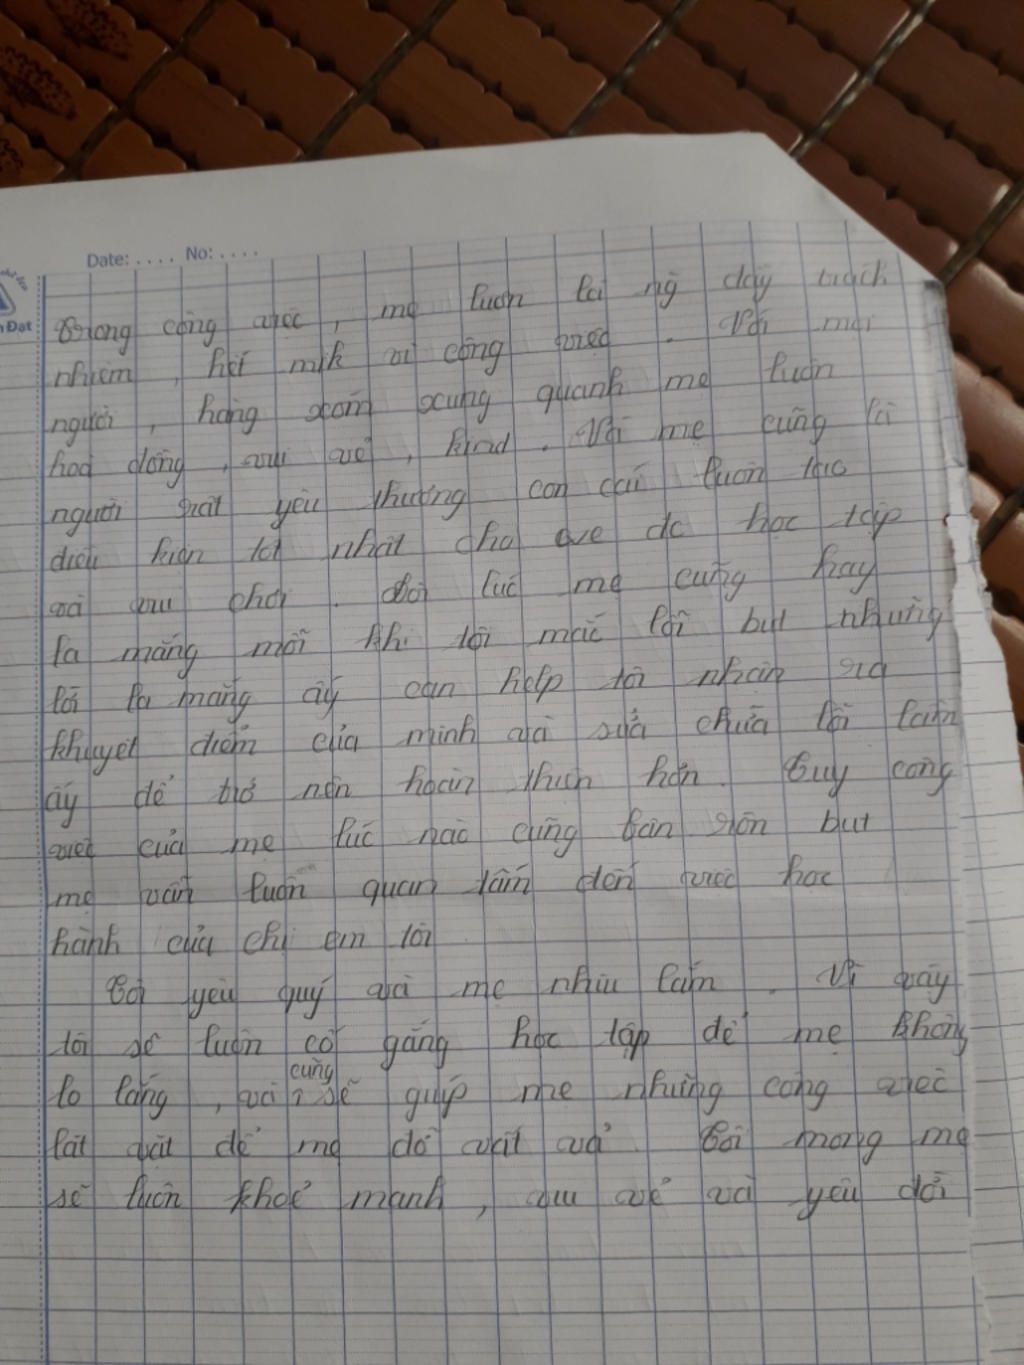 Date: .... No: ....
Đạt
Trong công việc, mẹ luôn là ng đầy trách
nhiệm, hết mik vì công việc. Với mọi
người, hàng xóm xung quanh mẹ luôn
hoà đồng, vui vẻ, kind. Với mẹ cũng là
người rất yêu thương con cái luôn tạo
điều kiện tốt nhất cho ve dc học tập
và vui chơi. Đôi lúc mẹ cũng hay
la mắng mỗi khi tôi mắc lỗi but những
lời la mắng ấy can help tôi nhận ra
khuyết điểm của mình và sửa chữa lỗi lầm
ấy để trở nên hoàn thiện hơn. Tuy công
việc của mẹ lúc nào cũng bận rộn but
mẹ vẫn luôn quan tâm đến việc học
hành của chị em tôi
Tôi yêu quý và mẹ nhìu lắm. Vì vậy
tôi sẽ luôn cố gắng học tập để mẹ không
lo lắng, và cũng sẽ giúp mẹ những công việc
lặt vặt để mẹ đỡ vất vả. Tôi mong mẹ
sẽ luôn khoẻ mạnh, vui vẻ và yêu đời